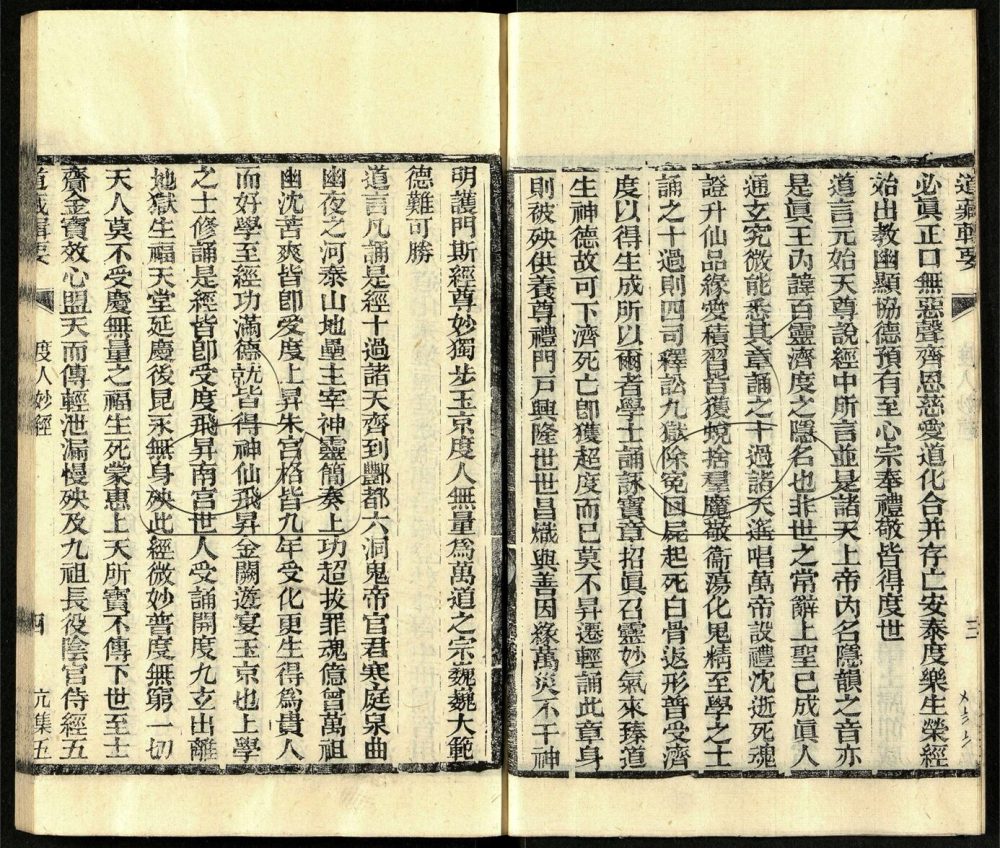 道藏輯要
必眞正口無惡聲齊恩慈愛道化合并存亡安泰度樂生榮經
始出教幽顯協德預有至心宗奉禮敬皆得度世
道言元始天尊說經中所言並是諸天上帝內名隱韻之音亦
是眞王內諱百靈濟度之隱名也非世之常辭上聖已成眞人
通玄究微能悉其章誦之十過諸天遙唱萬帝設禮沈逝死魂
證升仙品緣愛積習皆獲蛻捨羣魔敬衞蕩化鬼精至學之士
誦之十過則四司釋訟九獄除寃囘屍起死白骨返形普受濟
度以得生成所以爾者學士誦詠寶章招眞召靈妙氣來臻道
生神德故可下濟死亡卽獲超度而已莫不昇遷輕誦此章身
則被殃供養尊禮門戸興隆世世昌熾與善因緣萬災不干神
明護門斯經尊妙獨步玉京度人無量爲萬道之宗巍巍大範
德難可勝
道言凡誦是經十過諸天齊到酆都六洞鬼帝官君寒庭泉曲
幽夜之河泰山地壘主宰神靈簡奏上功超拔罪魂億曾萬祖
幽沈苦爽皆卽受度上昇朱宮格皆九年受化更生得爲貴人
而好學至經功滿德就皆得神仙飛昇金闕遊宴玉京也上學
之士修誦是經皆卽受度飛昇南宮世人受誦開度九玄出離
地獄生福天堂延慶後昆永無身殃此經微妙普度無窮一切
天人莫不受慶無量之福生死蒙惠上天所寶不傳下世至士
齎金寶效心盟天而傳輕泄漏慢殃及九祖長役陰官侍經五
道藏輯要 度人妙經 四 亢集五